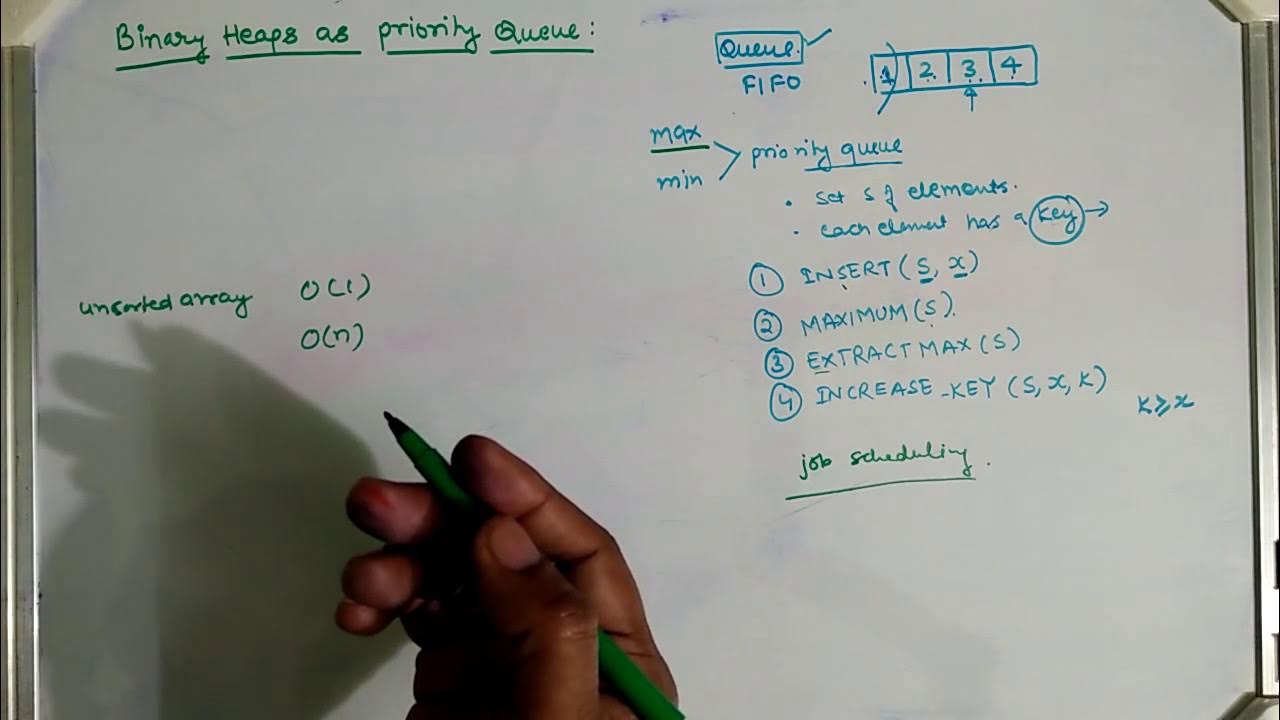 Binary Heaps as priority Queue:
Queue.
FIFO
1 2 3 4
max
min
priority queue
. set s of elements.
. each element has a key →
① INSERT (S, x)
② MAXIMUM (S).
③ EXTRACT MAX (S)
④ INCREASE_KEY (S, x, K)
K ≥ x
job scheduling.
unsorted array O(1)
O(n)